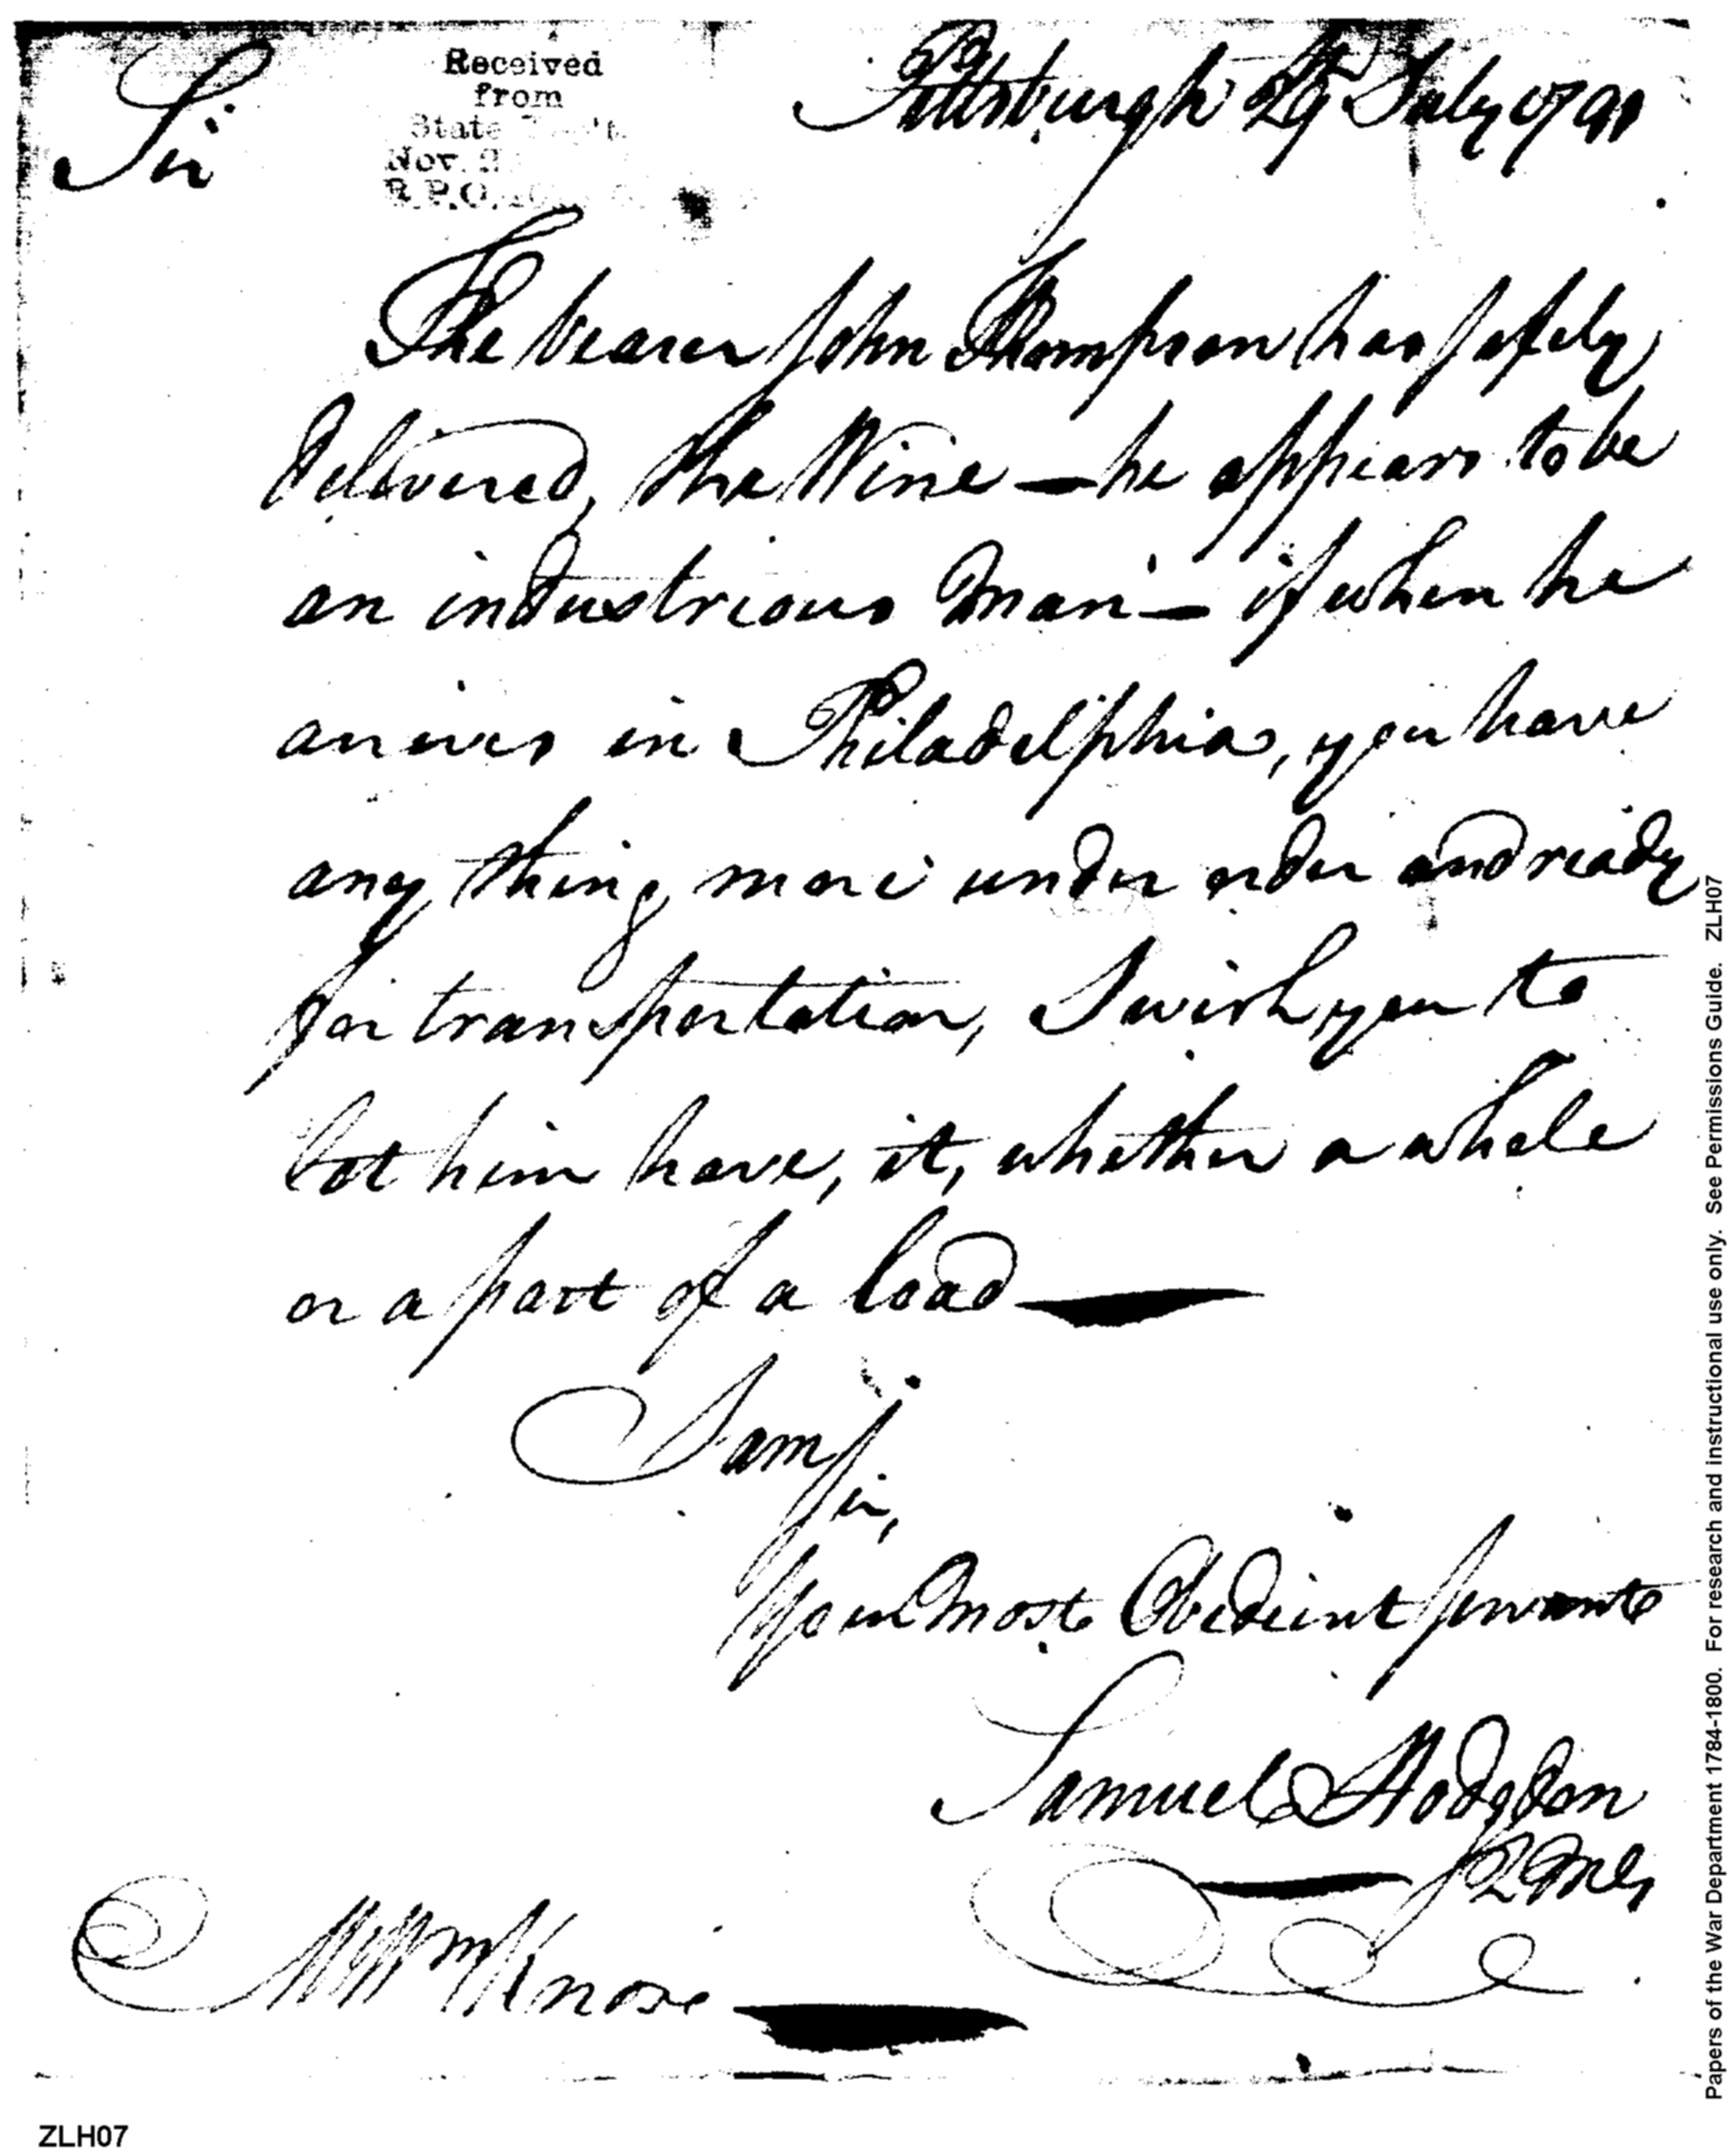 Pittsburgh 29 July 1791
Sir
Received
from
State
Nov. 2
R.P.O.
The bearer John Thompson has safely
delivered, the Wine — he appears to be
an industrious man — if when he
arrives in Philadelphia, you have
any thing more under order and ready
for transportation, I wish you to
let him have, it, whether a whole
or a part of a load —
I am Sir,
Your Most Obedient servant
Samuel Hodgdon
— QMG
Mr Wm Knox —
Papers of the War Department 1784-1800. For research and instructional use only. See Permissions Guide. ZLH07
ZLH07